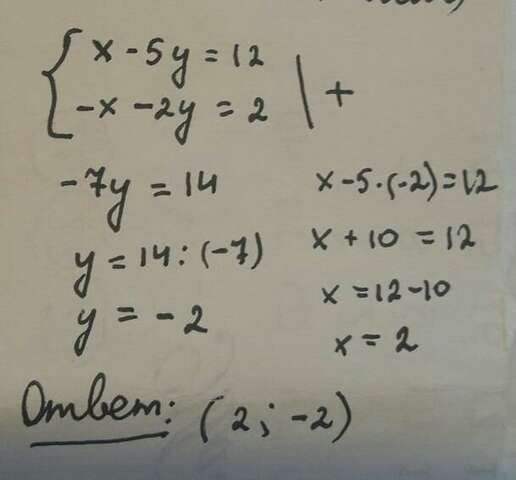 x - 5y = 12
-x - 2y = 2 | +
-7y = 14
y = 14 : (-7)
y = -2
x - 5 · (-2) = 12
x + 10 = 12
x = 12 - 10
x = 2
Ответ: (2; -2)